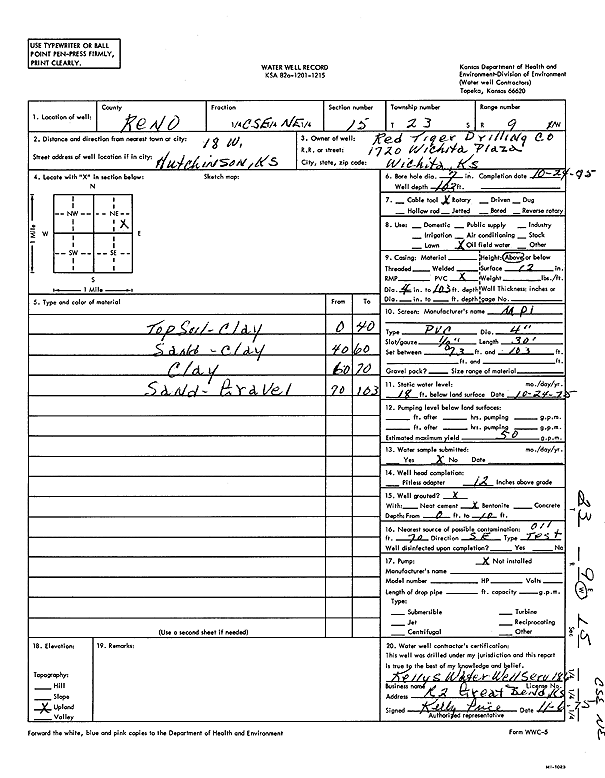 USE TYPEWRITER OR BALL
POINT PEN-PRESS FIRMLY,
PRINT CLEARLY.
WATER WELL RECORD
KSA 82a-1201-1215
Kansas Department of Health and
Environment-Division of Environment
(Water well Contractors)
Topeka, Kansas 66620
1. Location of well: County RENO Fraction 1/4 CSE 1/4 NE 1/4 Section number 15 Township number T 23 S Range number R 9 E/W
2. Distance and direction from nearest town or city: 18 W.
Street address of well location if in city: Hutchinson, KS
3. Owner of well: Red Tiger Drilling CO
R.R. or street: 1720 Wichita Plaza
City, state, zip code: Wichita, KS
4. Locate with "X" in section below: Sketch map:
N
NW NE X
W E
SW SE
S
1 Mile
1 Mile
5. Type and color of material From To
Top Soil-Clay 0 40
Sand-Clay 40 60
Clay 60 70
Sand-Gravel 70 103
(Use a second sheet if needed)
6. Bore hole dia. 7 in. Completion date 10-24-75
Well depth 103 ft.
7. Cable tool X Rotary Driven Dug
Hollow rod Jetted Bored Reverse rotary
8. Use: Domestic Public supply Industry
Irrigation Air conditioning Stock
Lawn X Oil field water Other
9. Casing: Material Height: Above or below
Threaded Welded Surface 12 in.
RMP PVC X Weight lbs./ft.
Dia. 4 in. to 103 ft. depth Wall Thickness: inches or
Dia. in. to ft. depth gage No.
10. Screen: Manufacturer's name
Type PVC Dia. 4"
Slot/gauze Length 30'
Set between 73 ft. and 103 ft.
ft. and ft.
Gravel pack? Size range of material
11. Static water level: mo./day/yr.
18 ft. below land surface Date 10-24-75
12. Pumping level below land surfaces:
ft. after hrs. pumping g.p.m.
ft. after hrs. pumping g.p.m.
Estimated maximum yield 50 g.p.m.
13. Water sample submitted: mo./day/yr.
Yes X No Date
14. Well head completion:
Pitless adapter 12 Inches above grade
15. Well grouted? X
With: Neat cement X Bentonite Concrete
Depth: From 0 ft. to 10 ft.
16. Nearest source of possible contamination: Oil
ft. 70 Direction SE Type Test
Well disinfected upon completion? Yes No
17. Pump: X Not installed
Manufacturer's name
Model number HP Volts
Length of drop pipe ft. capacity g.p.m.
Type:
Submersible Turbine
Jet Reciprocating
Centrifugal Other
18. Elevation:
Topography:
Hill
Slope
X Upland
Valley
19. Remarks:
20. Water well contractor's certification:
This well was drilled under my jurisdiction and this report
is true to the best of my knowledge and belief.
Kellys Water Well Serv. 186
Business name License No.
Address R2 Great Bend, KS
Signed Kelly Price Date
Authorized representative
23 - 9 E W 15 Sec
1/4 1/4 1/4
CSE NE
Forward the white, blue and pink copies to the Department of Health and Environment
Form WWC-5